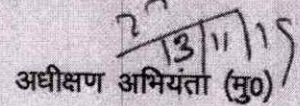 13/11/15
अधीक्षण अभियंता (मु0)